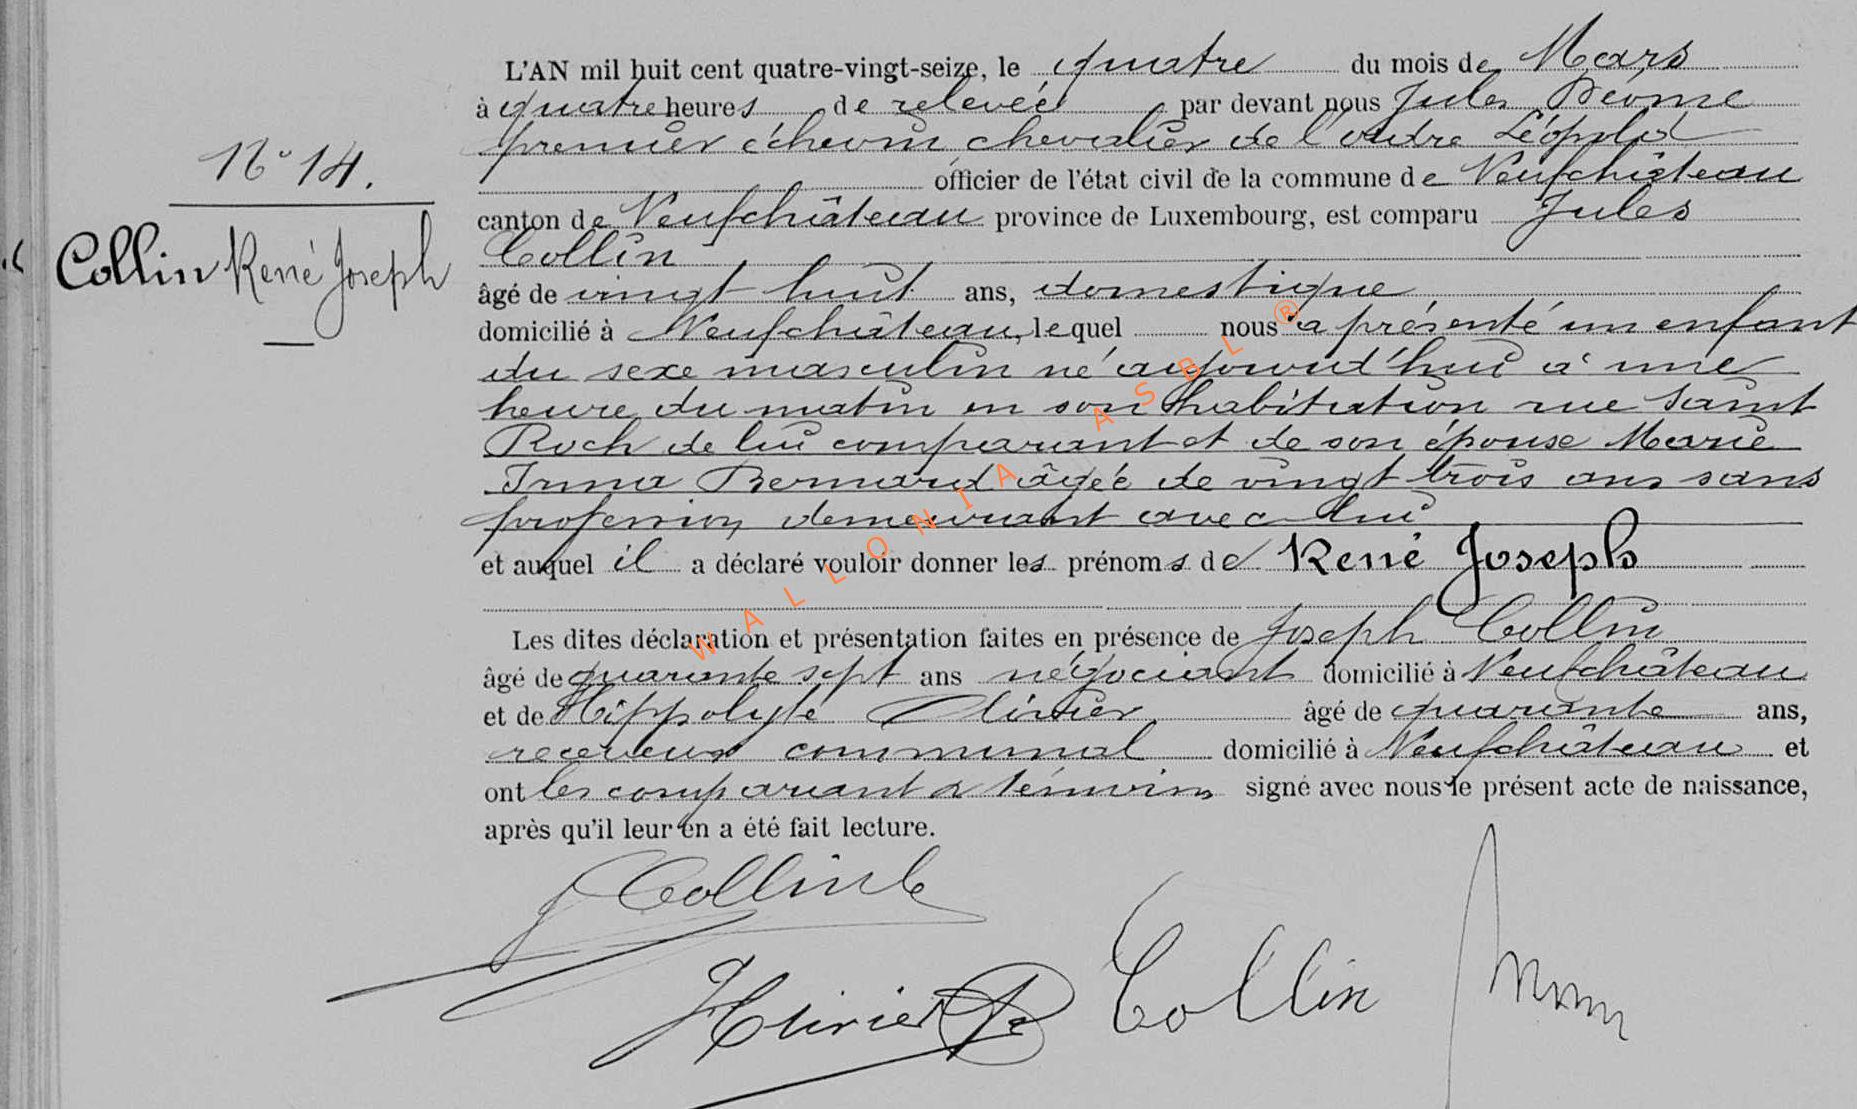 L'AN mil huit cent quatre-vingt-seize, le quatre du mois de Mars
à quatre heures de relevée par devant nous Jules
premier échevin chevalier de l'ordre Léopold
officier de l'état civil de la commune de Neufchâteau
canton de Neufchâteau province de Luxembourg, est comparu Jules
Collin
âgé de vingt huit ans, domestique
domicilié à Neufchâteau, lequel nous a présenté un enfant
du sexe masculin né aujourd'hui à une
heure du matin en son habitation rue Saint
Roch de lui comparant et de son épouse Marie
Irma Bernard âgée de vingt trois ans sans
profession demeurant avec lui
et auquel il a déclaré vouloir donner les prénoms de René Joseph
Les dites déclaration et présentation faites en présence de Joseph Collin
âgé de quarante sept ans négociant domicilié à Neufchâteau
et de Hippolyte Olivier âgé de quarante ans,
receveur communal domicilié à Neufchâteau et
ont les comparant & témoins signé avec nous le présent acte de naissance,
après qu'il leur en a été fait lecture.
N° 14.
Collin René Joseph
WALLONIA ASBL ®
Collin
Collin